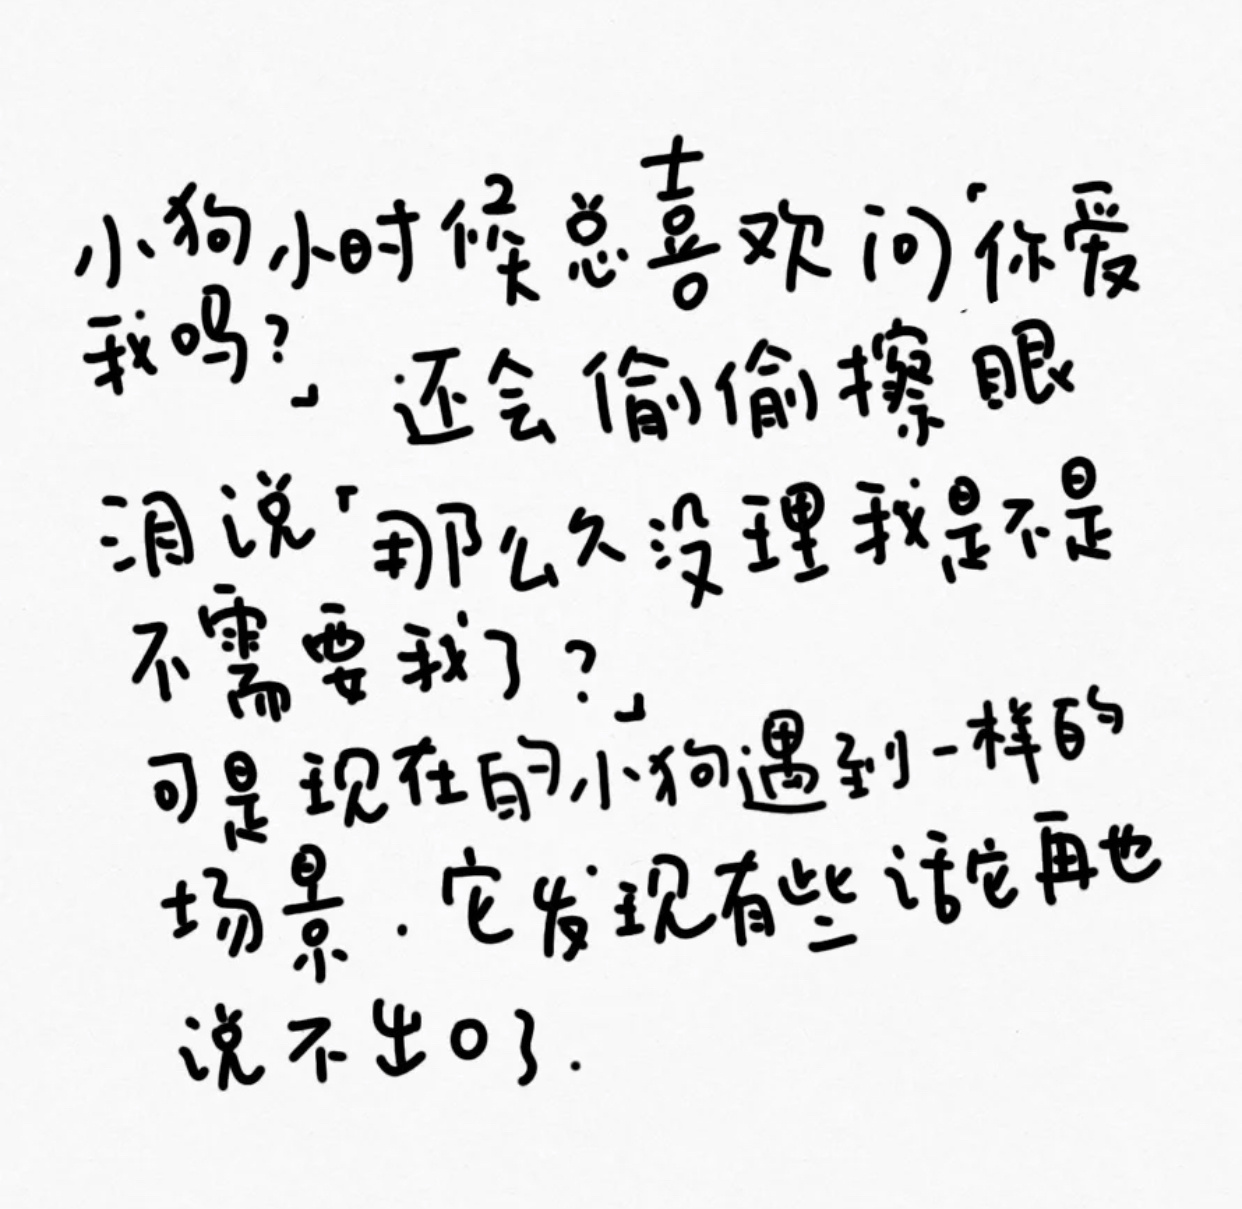 小狗小时候总喜欢问「你爱
我吗？」还会偷偷擦眼
泪说「那么久没理我是不是
不需要我了？」
可是现在的小狗遇到一样的
场景.它发现有些话它再也
说不出口了.